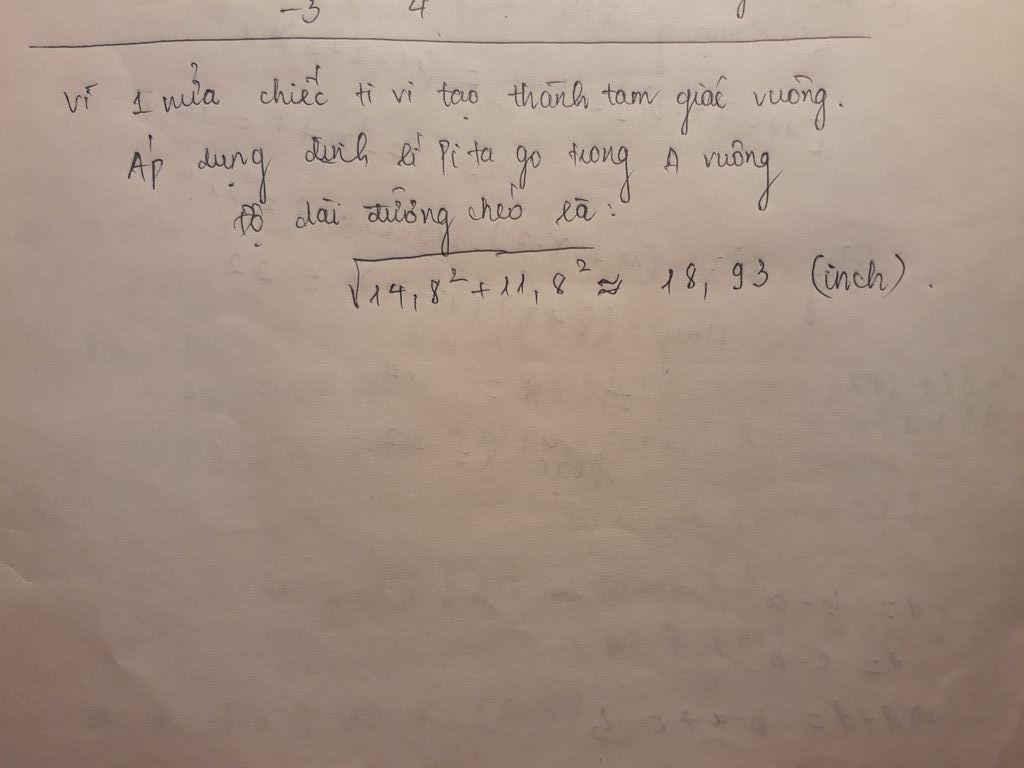 -3 4
Vì 1 nửa chiếc ti vi tạo thành tam giác vuông.
Áp dụng định lí Pi ta go trong Δ vuông
Độ dài đường chéo là:
√14,8² + 11,8² ≈ 18,93 (inch).